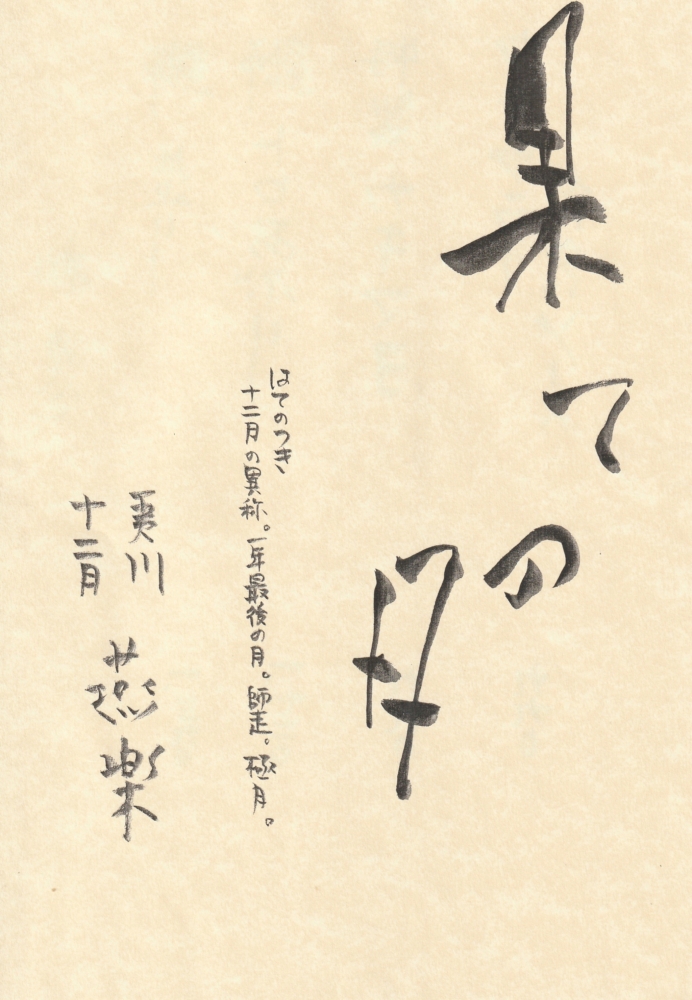 果ての月
はてのつき
十二月の異称。一年最後の月。師走。極月。
夷川
十二月
燕楽